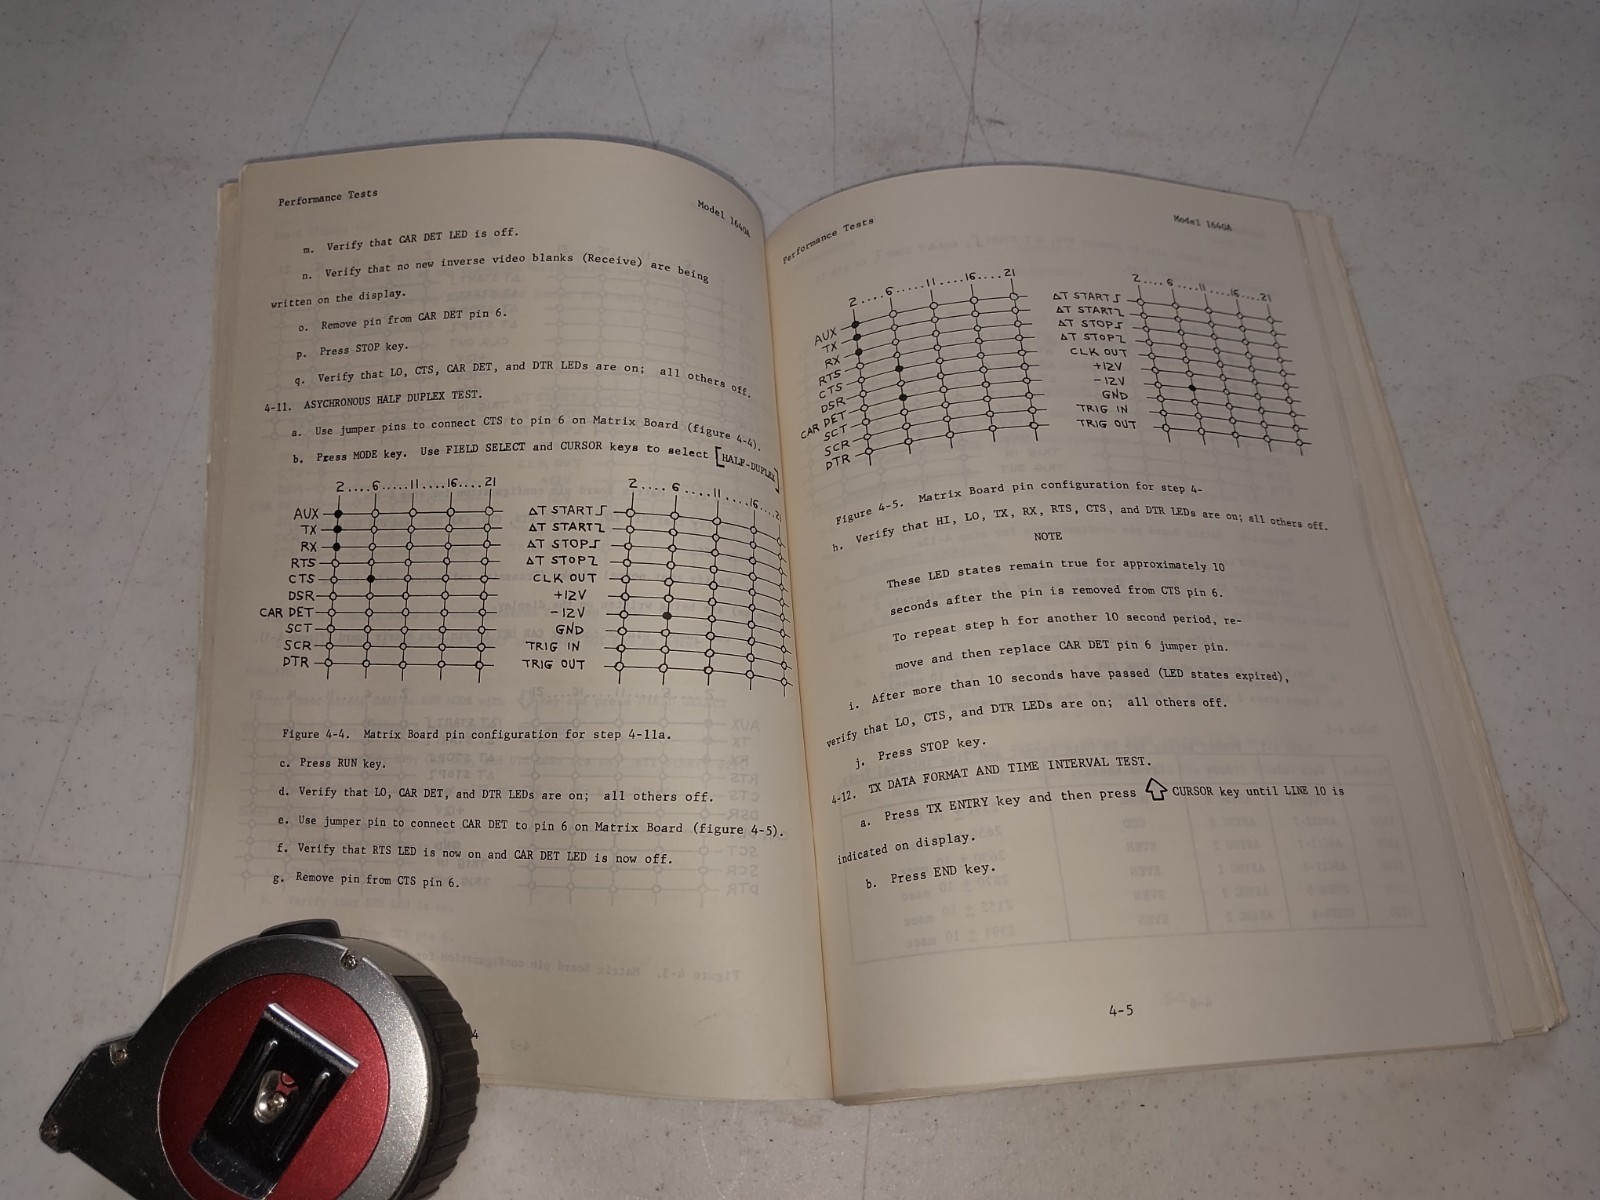 Performance Tests
Model 1640A
m. Verify that CAR DET LED is off.
n. Verify that no new inverse video blanks (Receive) are being
written on the display.
o. Remove pin from CAR DET pin 6.
p. Press STOP key.
q. Verify that LO, CTS, CAR DET, and DTR LEDs are on; all others off.
4-11. ASYCHRONOUS HALF DUPLEX TEST.
a. Use jumper pins to connect CTS to pin 6 on Matrix Board (figure 4-4).
b. Press MODE key. Use FIELD SELECT and CURSOR keys to select [HALF-DUPLEX]
2....6.....11....16....21
AUX
TX
RX
RTS
CTS
DSR
CAR DET
SCT
SCR
DTR
2....6.....11....16....2
ΔT START⎍
ΔT START
ΔT STOP
ΔT STOP
CLK OUT
+12V
-12V
GND
TRIG IN
TRIG OUT
Figure 4-4. Matrix Board pin configuration for step 4-11a.
c. Press RUN key.
d. Verify that LO, CAR DET, and DTR LEDs are on; all others off.
e. Use jumper pin to connect CAR DET to pin 6 on Matrix Board (figure 4-5).
f. Verify that RTS LED is now on and CAR DET LED is now off.
g. Remove pin from CTS pin 6.
4
Performance Tests
Model 1640A
2....6.....11....16....21
AUX
TX
RX
RTS
CTS
DSR
CAR DET
SCT
SCR
DTR
2....6.....11....16....21
ΔT START
ΔT START
ΔT STOP
ΔT STOP
CLK OUT
+12V
-12V
GND
TRIG IN
TRIG OUT
Figure 4-5. Matrix Board pin configuration for step 4-
h. Verify that HI, LO, TX, RX, RTS, CTS, and DTR LEDs are on; all others off.
NOTE
These LED states remain true for approximately 10
seconds after the pin is removed from CTS pin 6.
To repeat step h for another 10 second period, re-
move and then replace CAR DET pin 6 jumper pin.
i. After more than 10 seconds have passed (LED states expired),
verify that LO, CTS, and DTR LEDs are on; all others off.
j. Press STOP key.
4-12. TX DATA FORMAT AND TIME INTERVAL TEST.
a. Press TX ENTRY key and then press ⇧ CURSOR key until LINE 10 is
indicated on display.
b. Press END key.
4-5